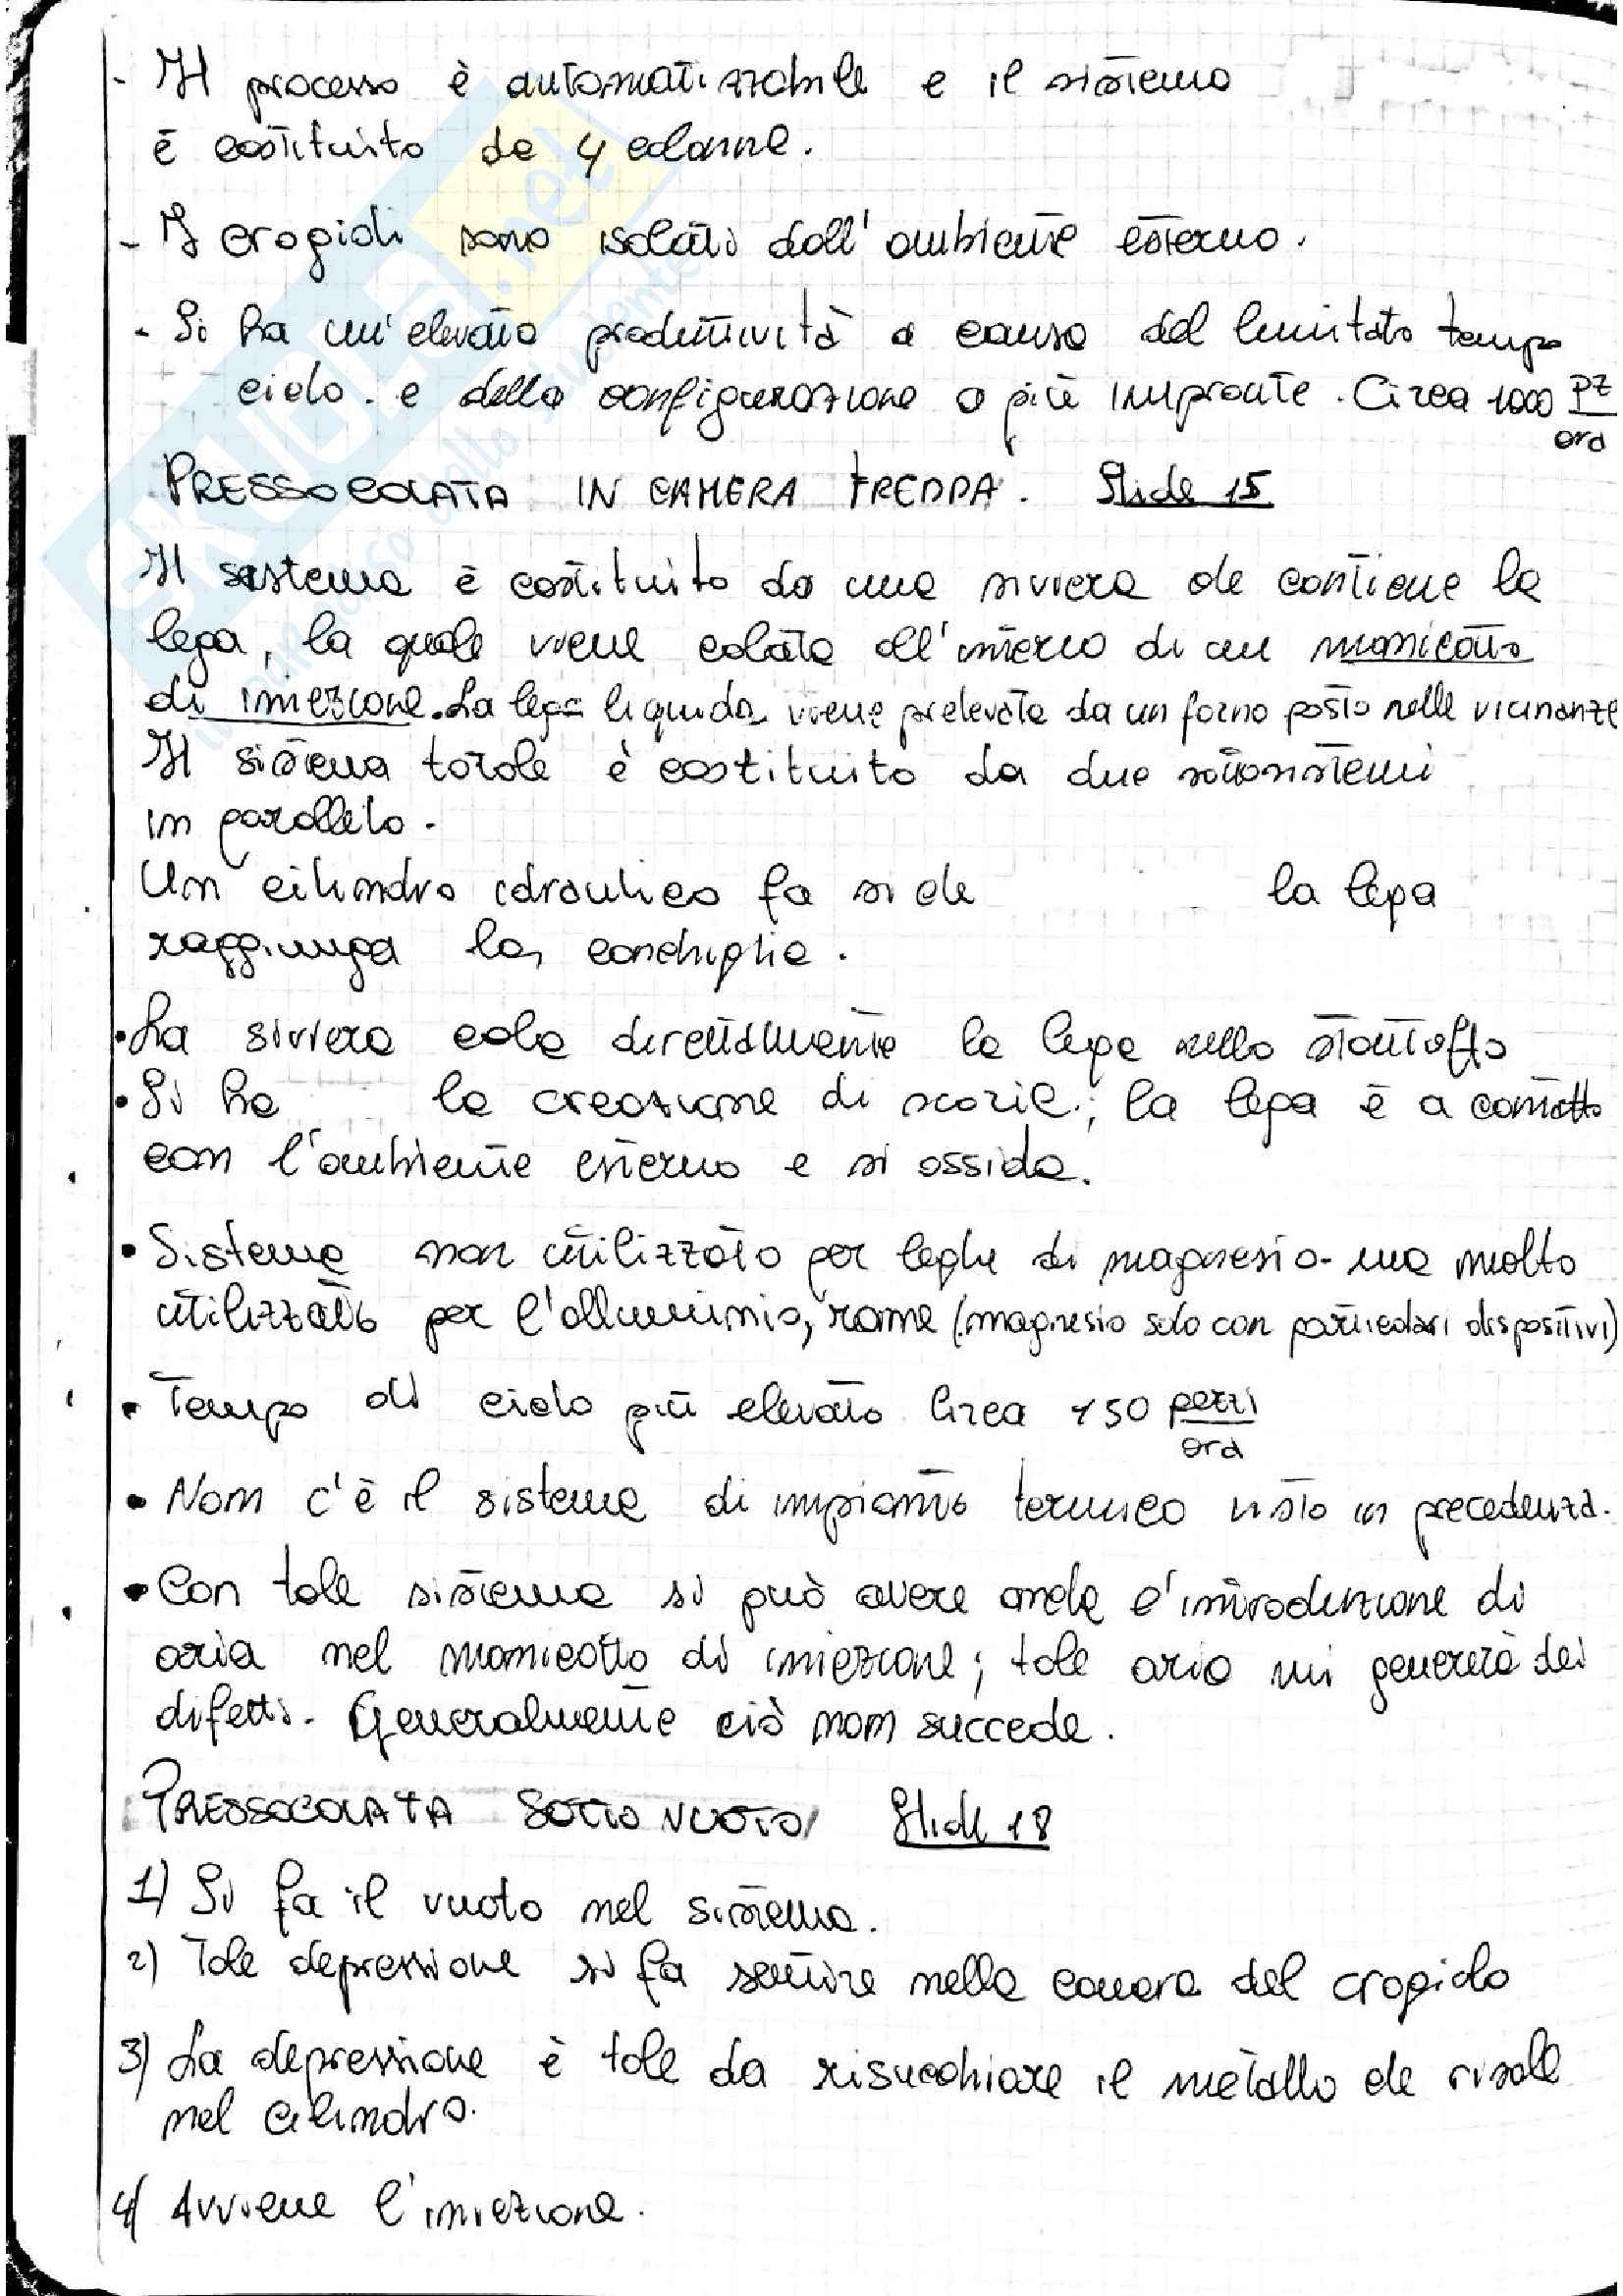 - Il processo è automatizzabile e il sistema
è costituito da 4 colonne.
- I crogioli sono isolati dall'ambiente esterno.
- Si ha un'elevata produttività a causa del limitato tempo
ciclo e della configurazione a più impronte. Circa 1000 pz/ora
PRESSOCOLATA IN CAMERA FREDDA. Slide 15
Il sistema è costituito da una siviera che contiene la
lega, la quale viene colata all'interno di un manicotto
di iniezione. La lega liquida viene prelevata da un forno posto nelle vicinanze
Il sistema totale è costituito da due sottosistemi
in parallelo.
Un cilindro idraulico fa si che la lega
raggiunga la conchiglia.
• La siviera cola direttamente la lega nello stantuffo
• Si ha la creazione di scorie; la lega è a contatto
con l'ambiente esterno e si ossida.
• Sistema non utilizzato per leghe di magnesio ma molto
utilizzato per l'alluminio, rame (magnesio solo con particolari dispositivi)
• Tempo di ciclo più elevato Circa 150 pezzi/ora
• Non c'è il sistema di impianto termico visto in precedenza.
• Con tale sistema si può avere anche l'introduzione di
aria nel manicotto di iniezione; tale aria mi genererà dei
difetti. Generalmente ciò non succede.
PRESSOCOLATA SOTTO VUOTO Slide 18
1) Si fa il vuoto nel sistema.
2) Tale depressione si fa sentire nella camera del crogiolo
3) La depressione è tale da risucchiare il metallo che risale
nel cilindro.
4) Avviene l'iniezione.
SKUOLA.net